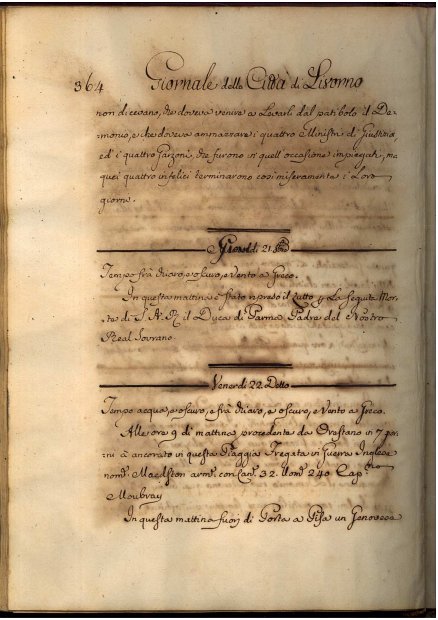 364
Giornale della Città di Livorno
non dicevano, che doveva venire a Levarli dal patibolo il De-
monio, e che doveva ammazzare i quattro Ministri di Giustizia,
ed i quattro Garzoni, che furono in quell occasione impiegati, ma
quei quattro infelici terminarono così miseramente i Loro
giorni.
Giovedì 21
Tempo frà chiaro, e oscuro, e Vento a Greco.
In questa mattina è stato ripreso il Lutto p La seguita Mor-
te di S. A. R. il Duca di Parma Padre del Nostro
Real Sovrano
Venerdi 22 Detto
Tempo acqua, e oscuro, e frà chiaro, e oscuro, e Vento a Greco.
Alle ore 9 di mattina procedente da in 7 gior-
ni à ancorato in questa Piaggia Fregata in Guerra Inglese
nom.ª Maedston arm.ª con Can.i 32. Uom.i 240 Cap.no
Moubray
In questa mattina fuori di Porta a Pisa un Genovese